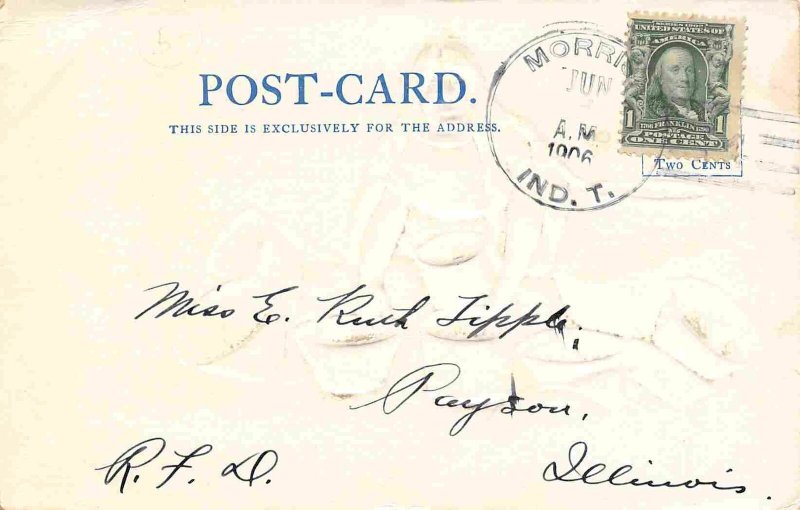 POST-CARD.
THIS SIDE IS EXCLUSIVELY FOR THE ADDRESS.
MORRI
JUN
A.M.
1906
IND. T.
SERIES 1902
UNITED STATES OF
AMERICA
1
1706 FRANKLIN 1790
POSTAGE
ONE CENT
Two Cents
Miss E. Ruth Tipple,
Payson,
R. F. D. Illinois.